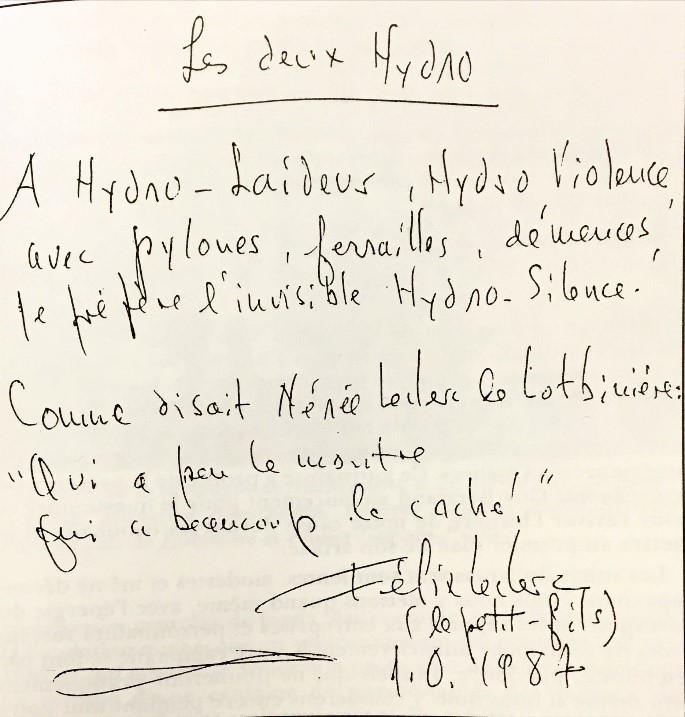 Les deux Hydro
A Hydro-Laideur, Hydro Violence,
avec pylones, ferrailles, démences,
je préfère l'invisible Hydro-Silence.
Comme disait Nérée Leclerc de Lotbinière:
"Qui a peu le montre
qui a beaucoup le cache"
Félix Leclerc
(le petit-fils)
I.O. 1987